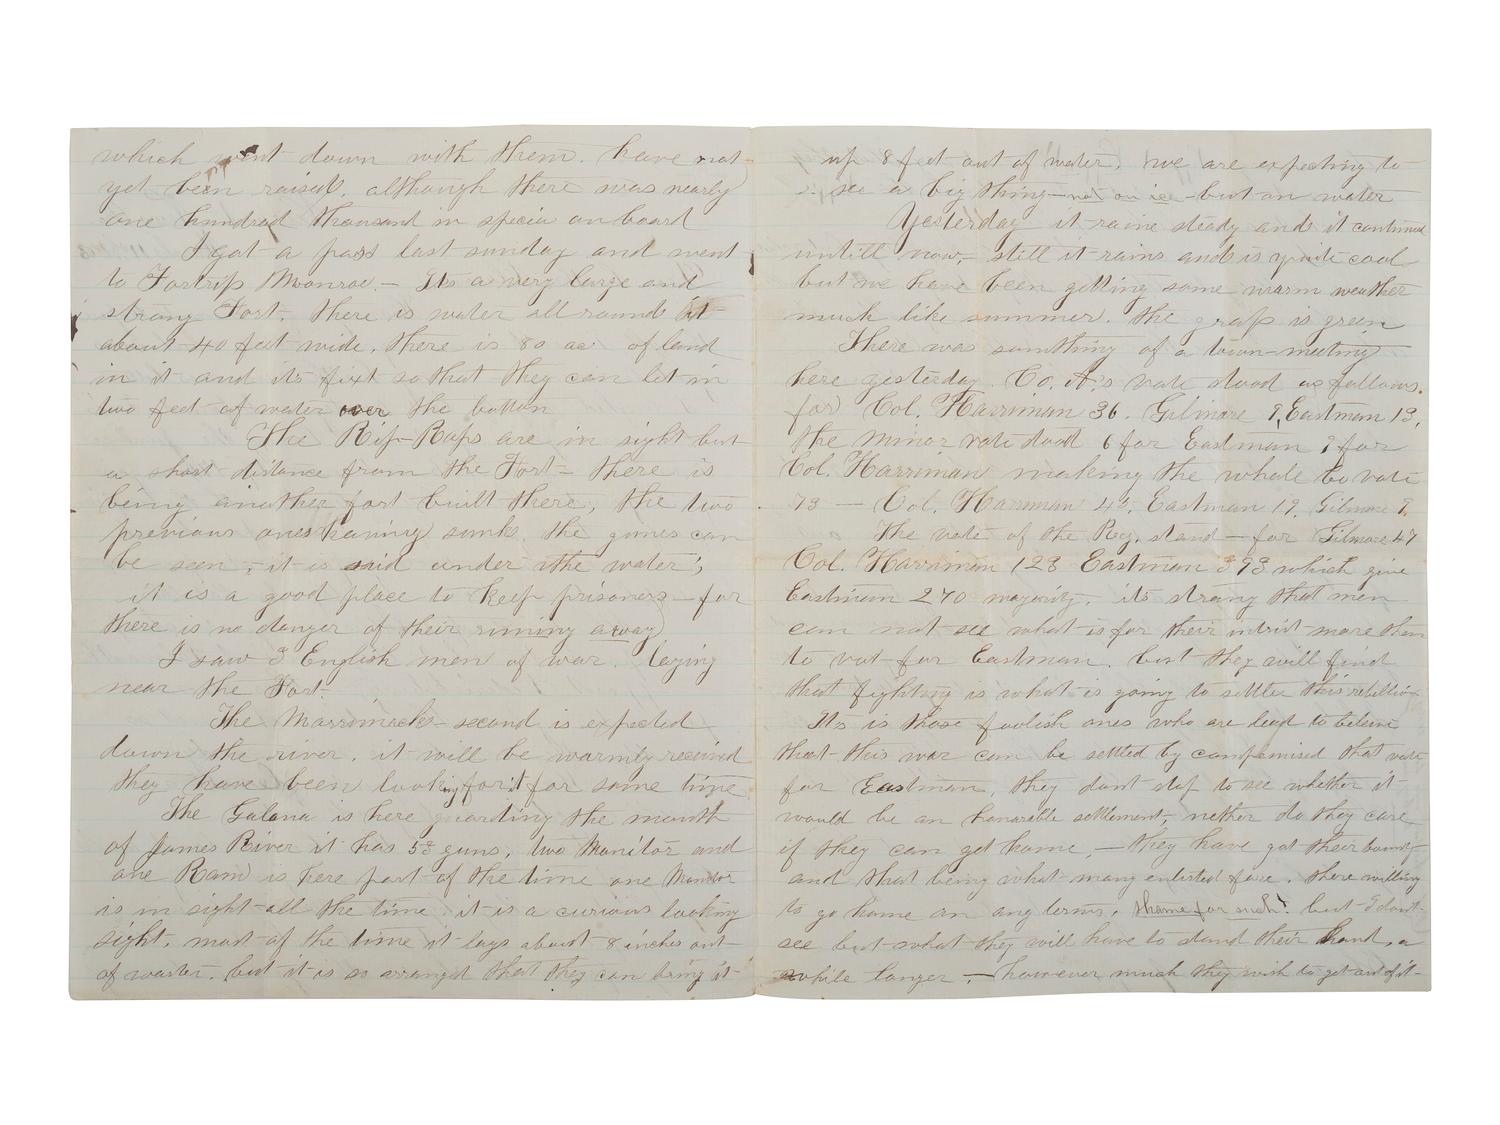 which went down with them. have not
yet been raised, although there was nearly
one hundred thousand in specia on board
I got a pass last sunday and went
to Fortrip Monroe. – Its a very large and
strong Fort. there is water all round it
about 40 feet wide. there is 80 ac of land
in it and its fixt so that they can let in
two feet of water over the bottom
The Rip-Raps are in sight but
a short distance from the Fort – there is
being another fort built there, the two
previous ones having sunk. the gunes can
be seen, it is said under the water;
it is a good place to keep prisoners – for
there is no danger of their runing away)
I saw 3 English men of war. laying
near the Fort
The Marrimack – second is expected
down the river. it will be warmly received
they have been looking for it for some time
The Galena is here guarding the mouth
of James River it has 53 guns, two Monitor and
one Ram is here part of the time one Monitor
is in sight all the time. it is a curious looking
sight. most of the time it lays about 8 inches out
of waster. but it is so arranged that they can bring it
up 8 feet out of water. we are expecting to
see a big thing – not on ice – but on water
Yesterday it raine steady and it continued
untill now, – still it rains and is quite cool
but we have been getting some warm weather
much like summer. the grass is green
There was somthing of a town-meeting
here yesterday. Co. A's vote stood as follows.
for) Col. Harriman 36. Gilmore 9, Eastman 13,
the minor vote stood 6 for Eastman 9 for
Col. Harriman making the whole Co vote
73 — Col. Harriman 45, Eastman 19, Gilmore 9.
The vote of the Reg. stand – for Gilmore 47
Col. Harriman 123 Eastman 393 which give
Eastman 270 majority. its strang that men
can not see what is for their intrist more then
to vot for Eastman. but they will find
that fighting is what is going to settler this rebellion
Its is those foolish ones who are lead to beleive
that this war can be settled by compomised that vote
for Eastman, they dont stop to see whether it
would be an honorable settlement, nether do they care
if they can get home, – they have got their bounty
and that being what many enlisted fore. there willing
to go home on any terms, shame for such! but I dont
see but what they will have to stand their hand, a
while longer, – however much they wish to get out of it